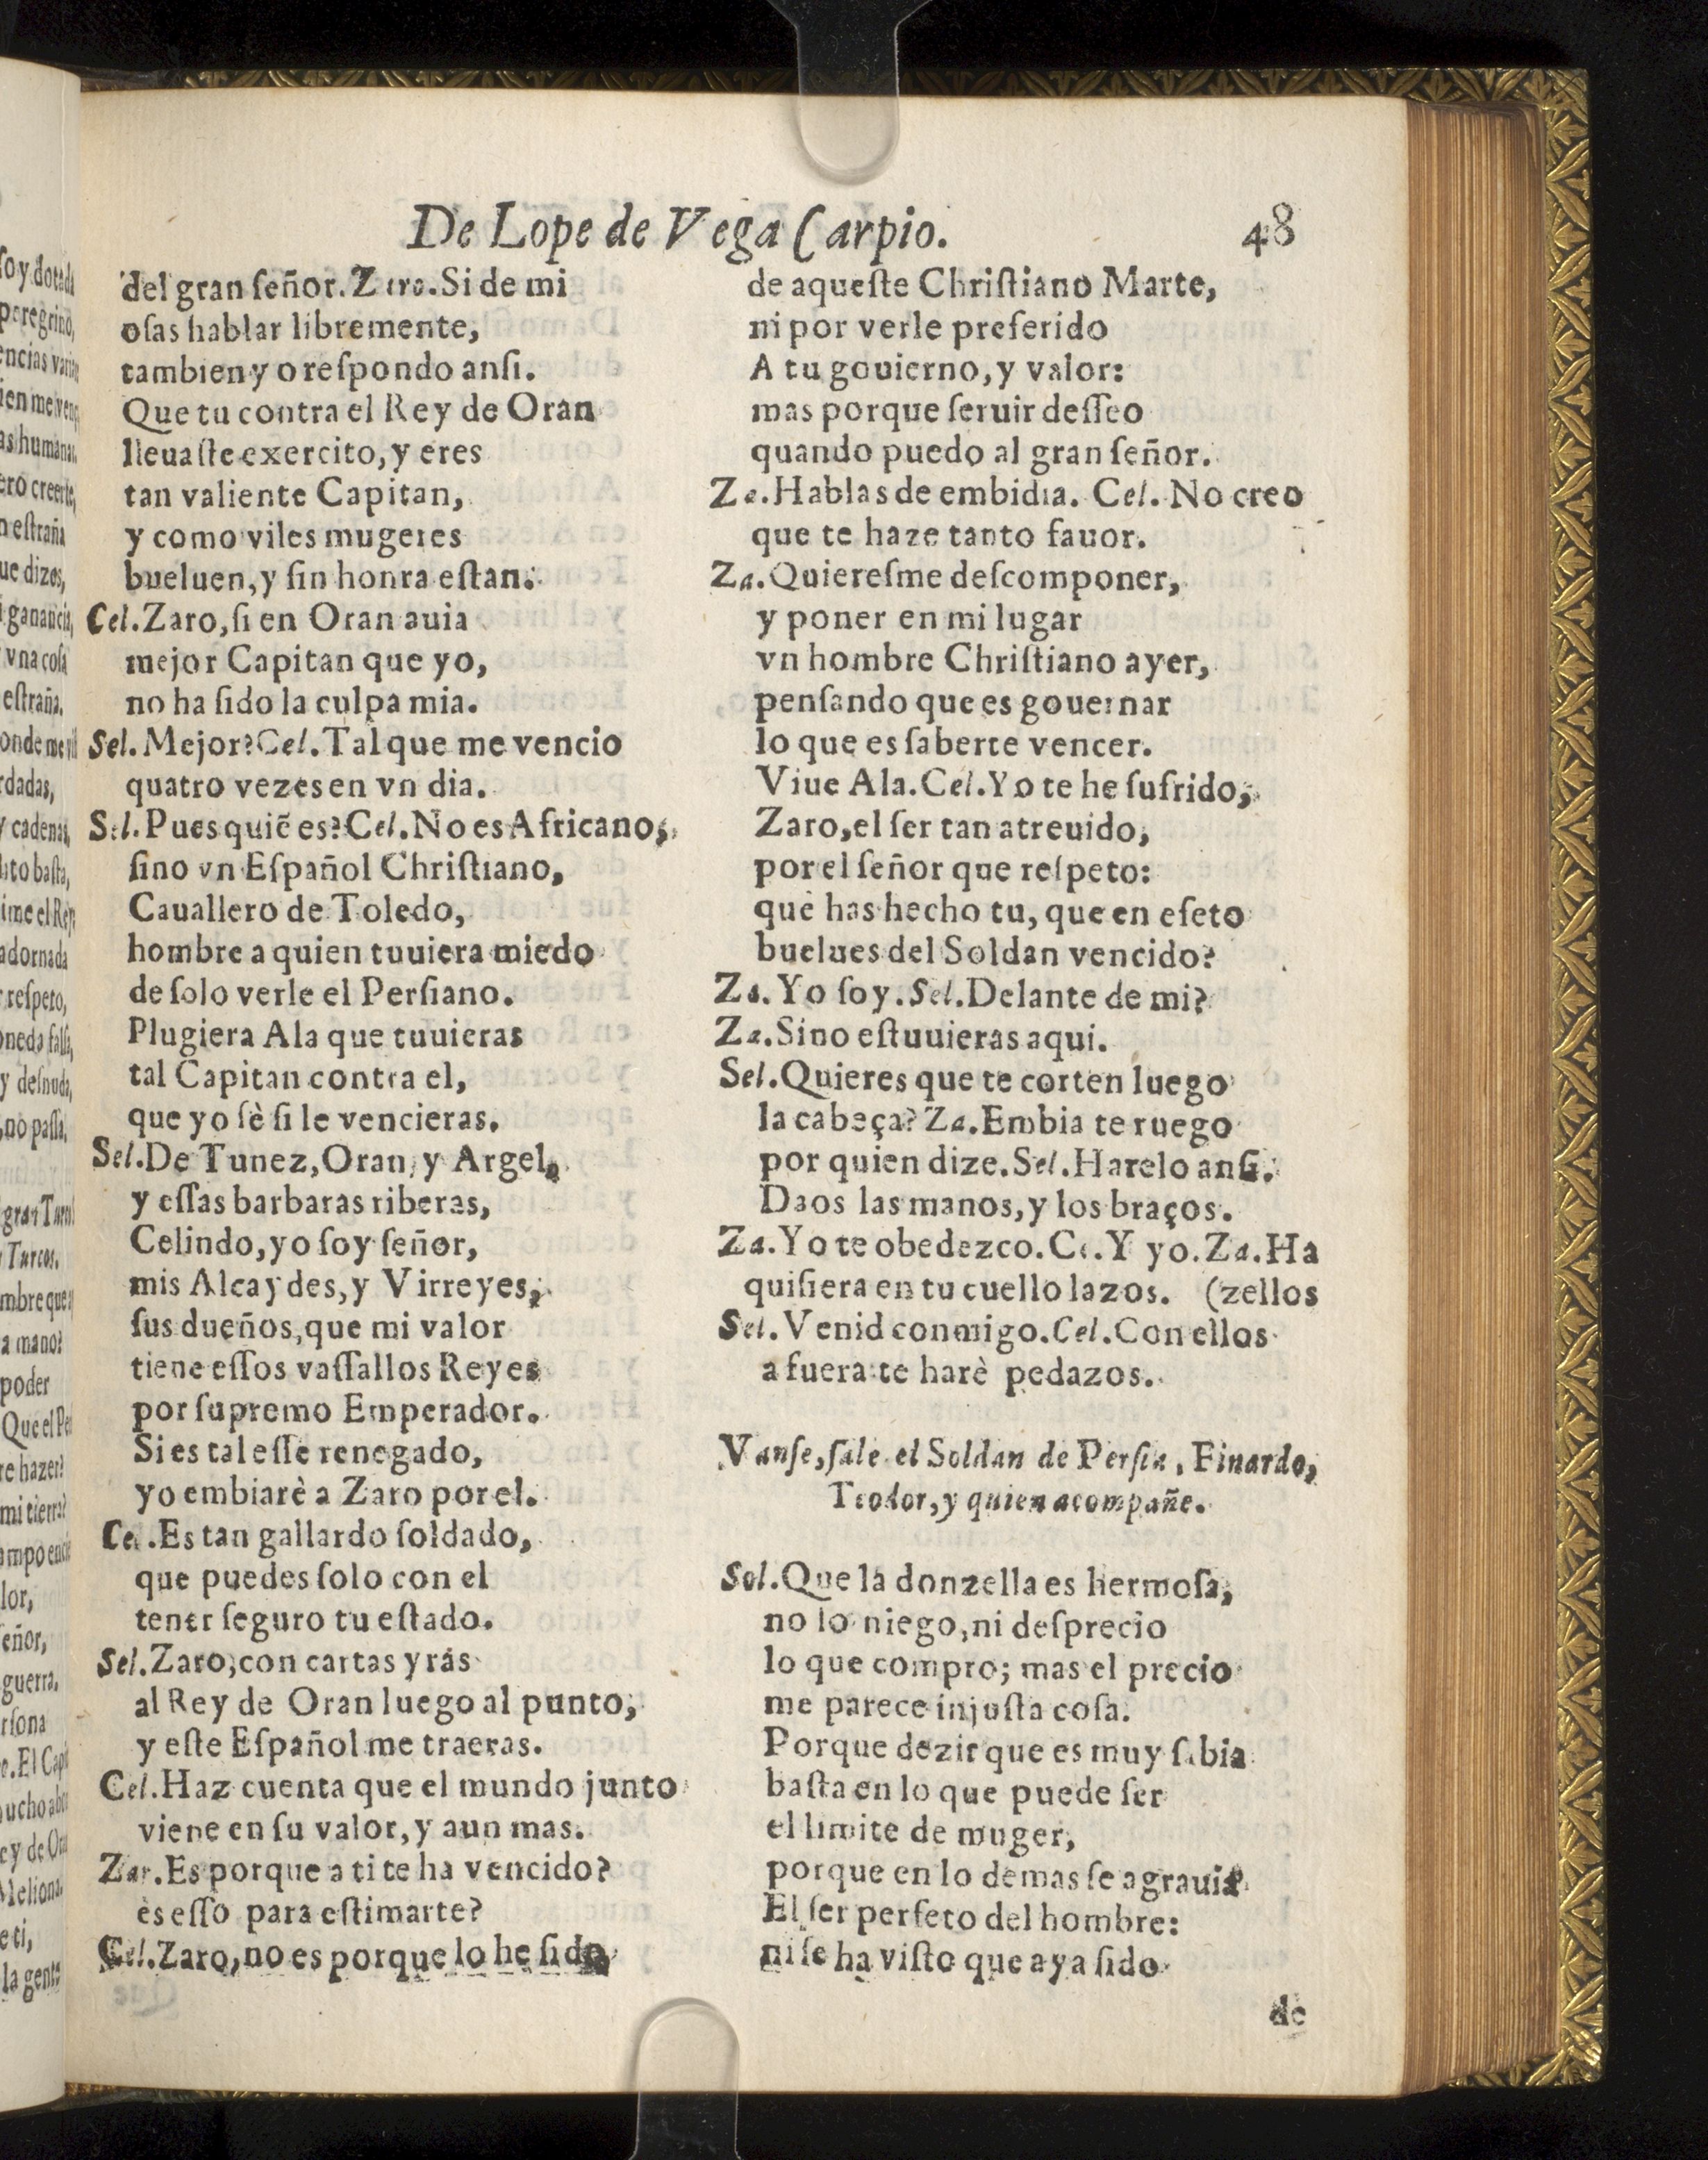 De Lope de Vega Carpio.
48
del gran ſeñor. Zaro. Si de mi
oſas hablar libremente,
tambien yo reſpondo anſi.
Que tu contra el Rey de Oran
lleuaſte exercito, y eres
tan valiente Capitan,
y como viles mugeres
bueluen, y ſin honra eſtan.
Cel. Zaro, ſi en Oran auia
mejor Capitan que yo,
no ha ſido la culpa mia.
Sel. Mejor? Cel. Tal que me vencio
quatro vezes en vn dia.
Sel. Pues quiẽ es? Cel. No es Africano,
ſino vn Eſpañol Chriſtiano,
Cauallero de Toledo,
hombre a quien tuuiera miedo
de ſolo verle el Perſiano.
Plugiera Ala que tuuieras
tal Capitan contra el,
que yo sè ſi le vencieras.
Sel. De Tunez, Oran, y Argel,
y eſſas barbaras riberas,
Celindo, yo ſoy ſeñor,
mis Alcaydes, y Virreyes,
ſus dueños, que mi valor
tiene eſſos vaſſallos Reyes
por ſupremo Emperador.
Si es tal eſſe renegado,
yo embiarè a Zaro por el.
Cel. Es tan gallardo ſoldado,
que puedes ſolo con el
tener ſeguro tu eſtado.
Sel. Zaro, con cartas yràs
al Rey de Oran luego al punto,
y eſte Eſpañol me traeras.
Cel. Haz cuenta que el mundo junto
viene en ſu valor, y aun mas.
Zar. Es porque a ti te ha vencido?
ès eſſo para eſtimarte?
Cel. Zaro, no es porque lo he ſido
de aqueſte Chriſtiano Marte,
ni por verle preferido
A tu gouierno, y valor:
mas porque ſeruir deſſeo
quando puedo al gran ſeñor.
Za. Hablas de embidia. Cel. No creo
que te haze tanto fauor.
Za. Quieresme deſcomponer,
y poner en mi lugar
vn hombre Chriſtiano ayer,
penſando que es gouernar
lo que es ſaberte vencer.
Viue Ala. Cel. Yo te he ſufrido,
Zaro, el ſer tan atreuido,
por el ſeñor que reſpeto:
què has hecho tu, que en efeto
buelues del Soldan vencido?
Za. Yo ſoy. Sel. Delante de mi?
Za. Sino eſtuuieras aqui.
Sel. Quieres que te corten luego
la cabeça? Za. Embia te ruego
por quien dize. Sel. Harelo anſi.
Daos las manos, y los braços.
Za. Yo te obedezco. Ce. Y yo. Za. Ha
quiſiera en tu cuello lazos. (zellos
Sel. Venid conmigo. Cel. Con ellos
a fuera te harè pedazos.
Vanſe, ſale el Soldan de Perſia, Finardo,
Teodor, y quien acompañe.
Sol. Que la donzella es hermoſa,
no lo niego, ni deſprecio
lo que compro; mas el precio
me parece injuſta coſa.
Porque dezir que es muy ſabia
baſta en lo que puede ſer
el limite de muger,
porque en lo demas ſe agrauia
El ſer perfeto del hombre:
ni ſe ha viſto que aya ſido
de